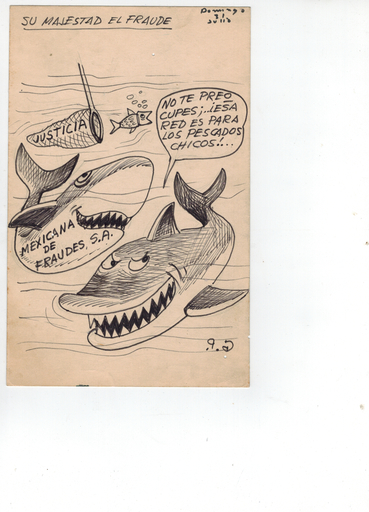 SU MAJESTAD EL FRAUDE
Domingo
31
Julio
JUSTICIA
NO TE PREO
CUPES;..¡ESA
RED ES PARA
LOS PESCADOS
CHICOS!...
MEXICANA
DE
FRAUDES, S.A.